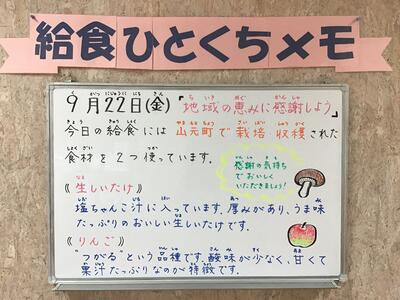 給食ひとくちメモ
9月22日(金) 「地域の恵みに感謝しよう」
今日の給食には山元町で栽培・収穫された
食材を2つ使っています。
感謝の気持ち
でおいしく
いただきましょう！
《生しいたけ》
塩ちゃんこ汁に入っています。厚みがあり、うま味
たっぷりのおいしい生しいたけです。
《りんご》
"つがる"という品種です。酸味が少なく、甘くて
果汁たっぷりなのが特徴です。